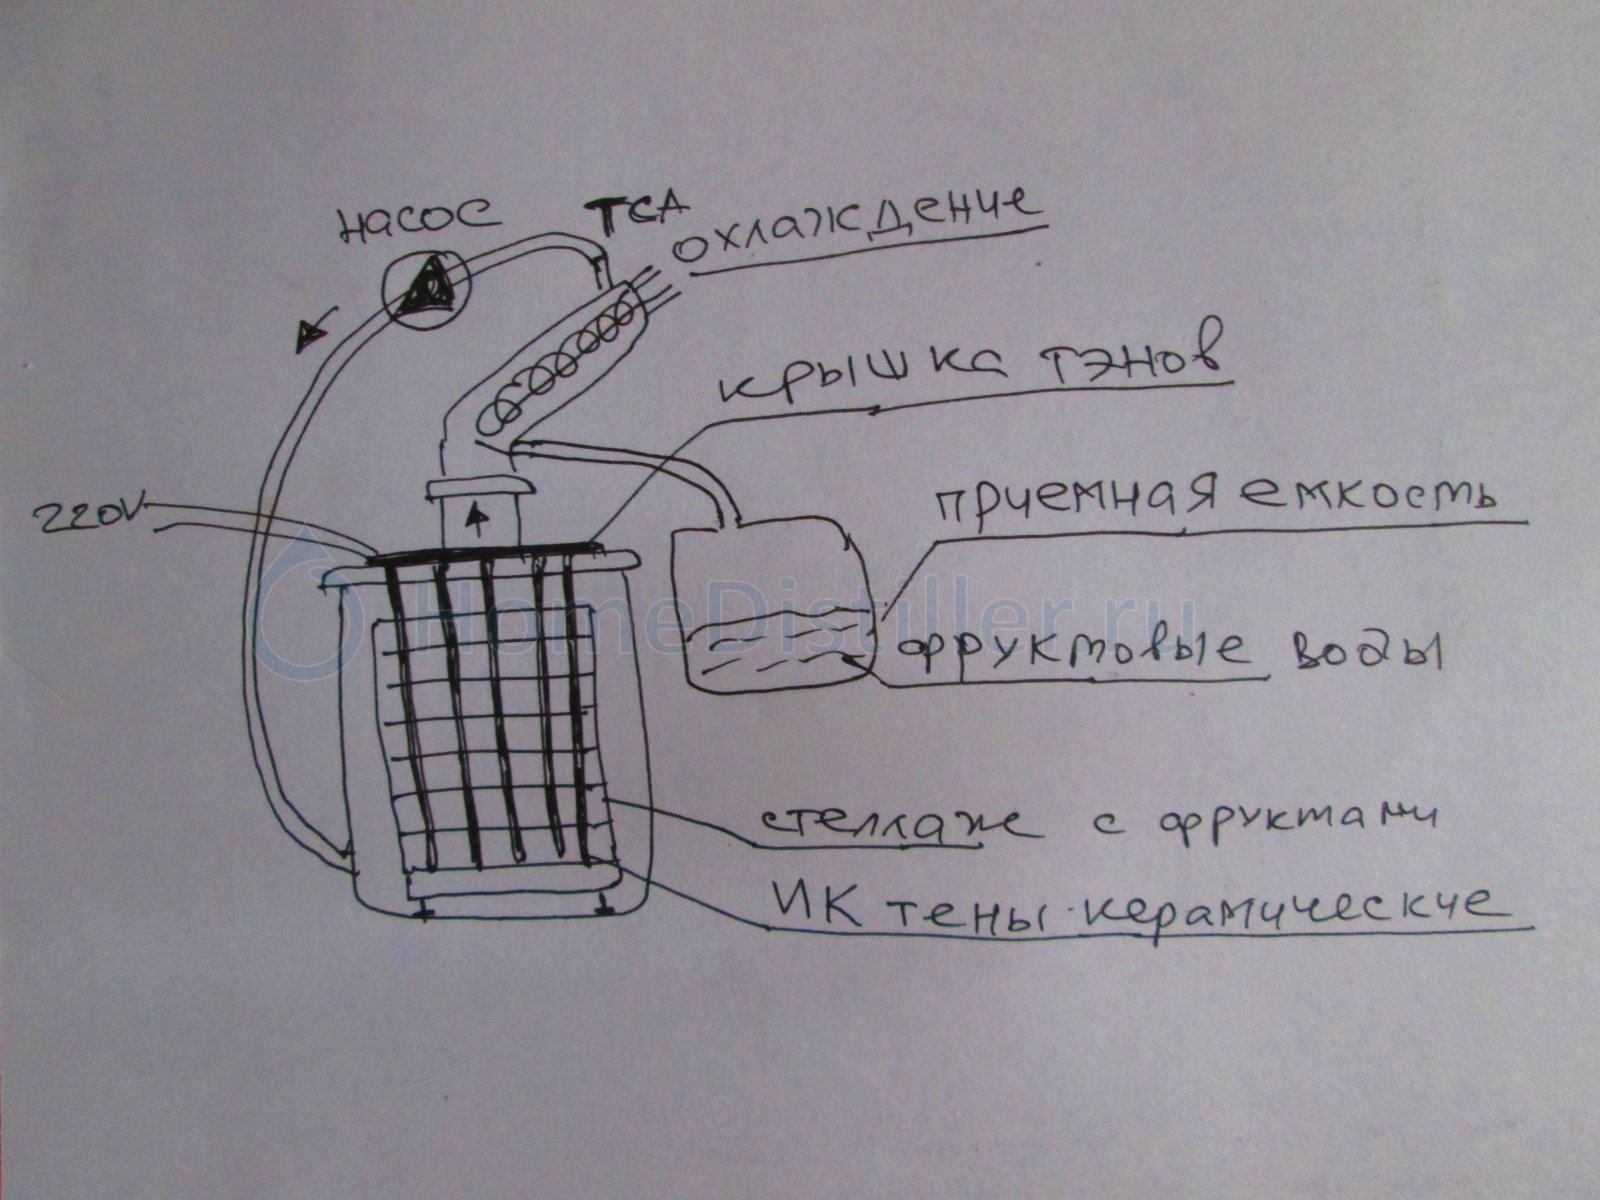 насос
ТСА
охлаждение
крышка тэнов
220V
приемная емкость
HomeDistiller.ru
фруктовые воды
стеллаж с фруктами
ИК тены керамические